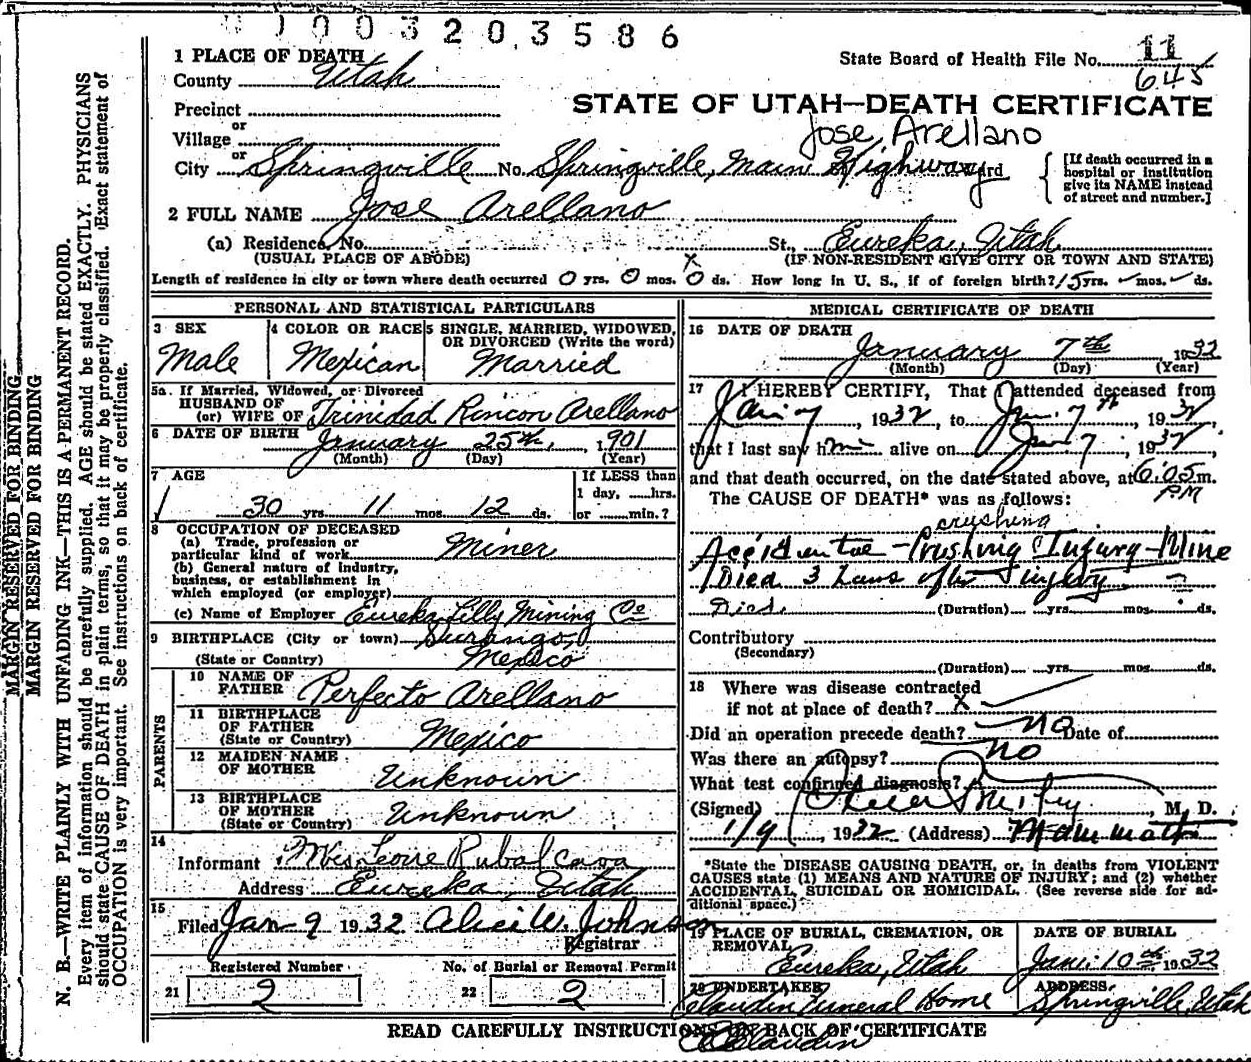 1003203586
State Board of Health File No. 11
645
1 PLACE OF DEATH
County Utah
STATE OF UTAH—DEATH CERTIFICATE
Precinct
or
Village
Jose Arellano
or
City Springville No. Springville, Main Highway
[If death occurred in a hospital or institution give its NAME instead of street and number.]
2 FULL NAME Jose Arellano
(a) Residence, No. St., Eureka, Utah
(USUAL PLACE OF ABODE) (IF NON-RESIDENT GIVE CITY OR TOWN AND STATE)
Length of residence in city or town where death occurred 0 yrs. 0 mos. 0 ds. How long in U. S., if of foreign birth? 15 yrs. mos. ds.
PERSONAL AND STATISTICAL PARTICULARS
3 SEX
Male
4 COLOR OR RACE
Mexican
5 SINGLE, MARRIED, WIDOWED, OR DIVORCED (Write the word)
Married
5a. If Married, Widowed, or Divorced
HUSBAND OF
(or) WIFE OF Trinidad Rincon Arellano
6 DATE OF BIRTH January 25th, 1901
(Month) (Day) (Year)
7 AGE
30 yrs. 11 mos. 12 ds.
If LESS than
1 day, hrs.
or min.?
8 OCCUPATION OF DECEASED
(a) Trade, profession or
particular kind of work Miner
(b) General nature of Industry,
business, or establishment in
which employed (or employer)
(c) Name of Employer Eureka Lilly Mining Co
9 BIRTHPLACE (City or town) Durango,
(State or Country) Mexico
PARENTS
10 NAME OF
FATHER Perfecto Arellano
11 BIRTHPLACE
OF FATHER
(State or Country) Mexico
12 MAIDEN NAME
OF MOTHER Unknown
13 BIRTHPLACE
OF MOTHER
(State or Country) Unknown
14
Informant Mrs Leone Rubalcava
Address Eureka, Utah
15
Filed Jan 9 1932 Alice W. Johnson
Registrar
Registered Number
21 2
No. of Burial or Removal Permit
22 2
MEDICAL CERTIFICATE OF DEATH
16 DATE OF DEATH
January 7th 1932
(Month) (Day) (Year)
17 I HEREBY CERTIFY, That I attended deceased from
Jan 7, 1932, to Jan. 7th, 1932
that I last saw him alive on Jan 7, 1932,
and that death occurred, on the date stated above, at 6:05 m.
PM
The CAUSE OF DEATH* was as follows:
crushing
Accidental - Crushing Injury - Mine
Died 3 hours after injury
Died. (Duration) yrs. mos. ds.
Contributory
(Secondary)
(Duration) yrs. mos. ds.
18 Where was disease contracted
if not at place of death? X
Did an operation precede death? No Date of
Was there an autopsy? No
What test confirmed diagnosis?
(Signed) M. D.
1/9, 1932 (Address) Mammoth
*State the DISEASE CAUSING DEATH, or, in deaths from VIOLENT
CAUSES state (1) MEANS AND NATURE OF INJURY; and (2) whether
ACCIDENTAL, SUICIDAL OR HOMICIDAL. (See reverse side for ad-
ditional space.)
19 PLACE OF BURIAL, CREMATION, OR
REMOVAL
Eureka, Utah
DATE OF BURIAL
Jan. 10th 1932
20 UNDERTAKER
Claudin Funeral Home
ADDRESS
Springville, Utah
READ CAREFULLY INSTRUCTIONS ON BACK OF CERTIFICATE
Claudin
MARGIN RESERVED FOR BINDING
MARGIN RESERVED FOR BINDING
N. B.—WRITE PLAINLY WITH UNFADING INK—THIS IS A PERMANENT RECORD.
Every item of information should be carefully supplied. AGE should be stated EXACTLY. PHYSICIANS
should state CAUSE OF DEATH in plain terms, so that it may be properly classified. Exact statement of
OCCUPATION is very important. See instructions on back of certificate.